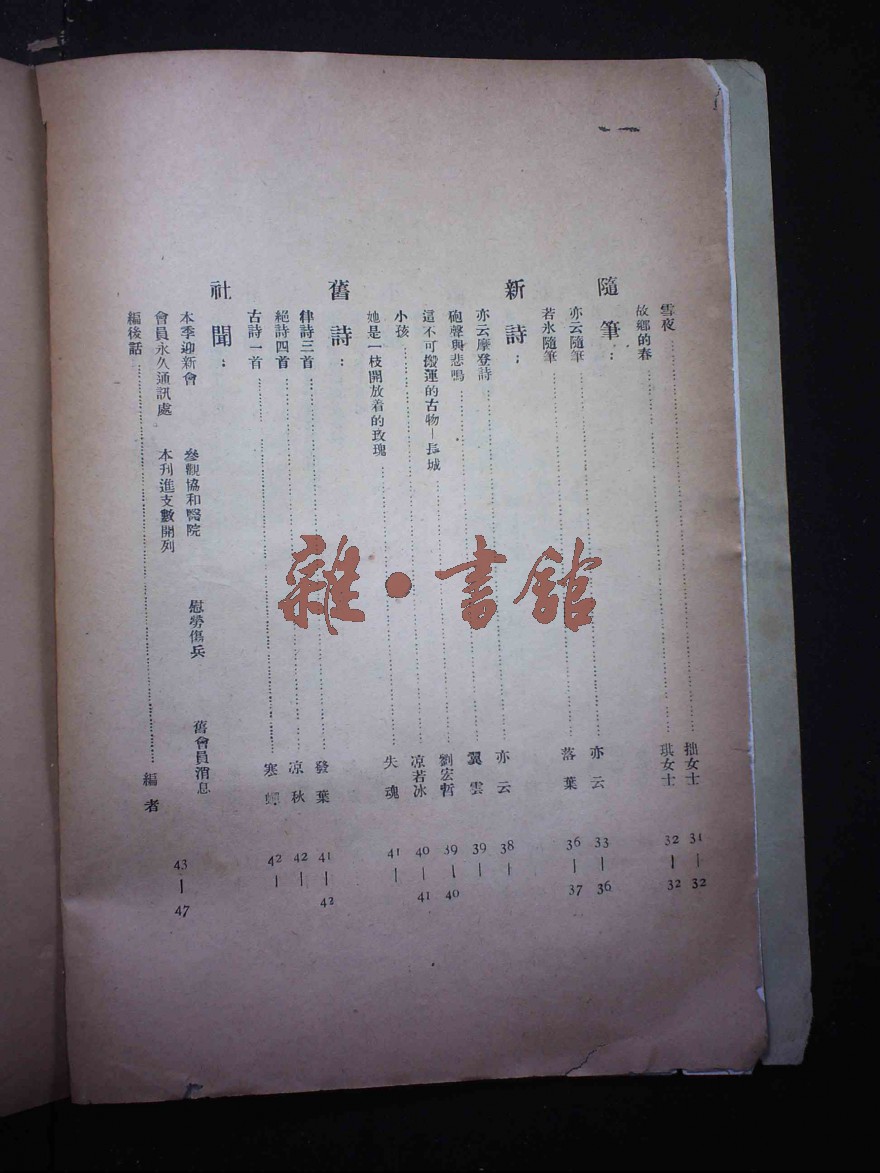 雪夜……拙女士 31—32
故鄉的春……琪女士 32—32
隨筆：
亦云隨筆……亦云 33—36
若氷隨筆……落葉 36—37
新詩：
亦云摩登詩……亦云 38—
砲聲與悲鳴……翼雲 39—
這不可搬運的古物—長城……劉宏哲 39—40
小孩……凉若冰 40—41
她是一枝開放着的玫瑰……失魂 41—
舊詩：
律詩三首……發葉 41—42
絕詩四首……凉秋 42—
古詩一首……寒蟬 42—
社聞：
本季迎新會 參觀協和醫院 慰勞傷兵 舊會員消息 43—47
會員永久通訊處。 本刊進支數開列
編後話……編者
雜·書館